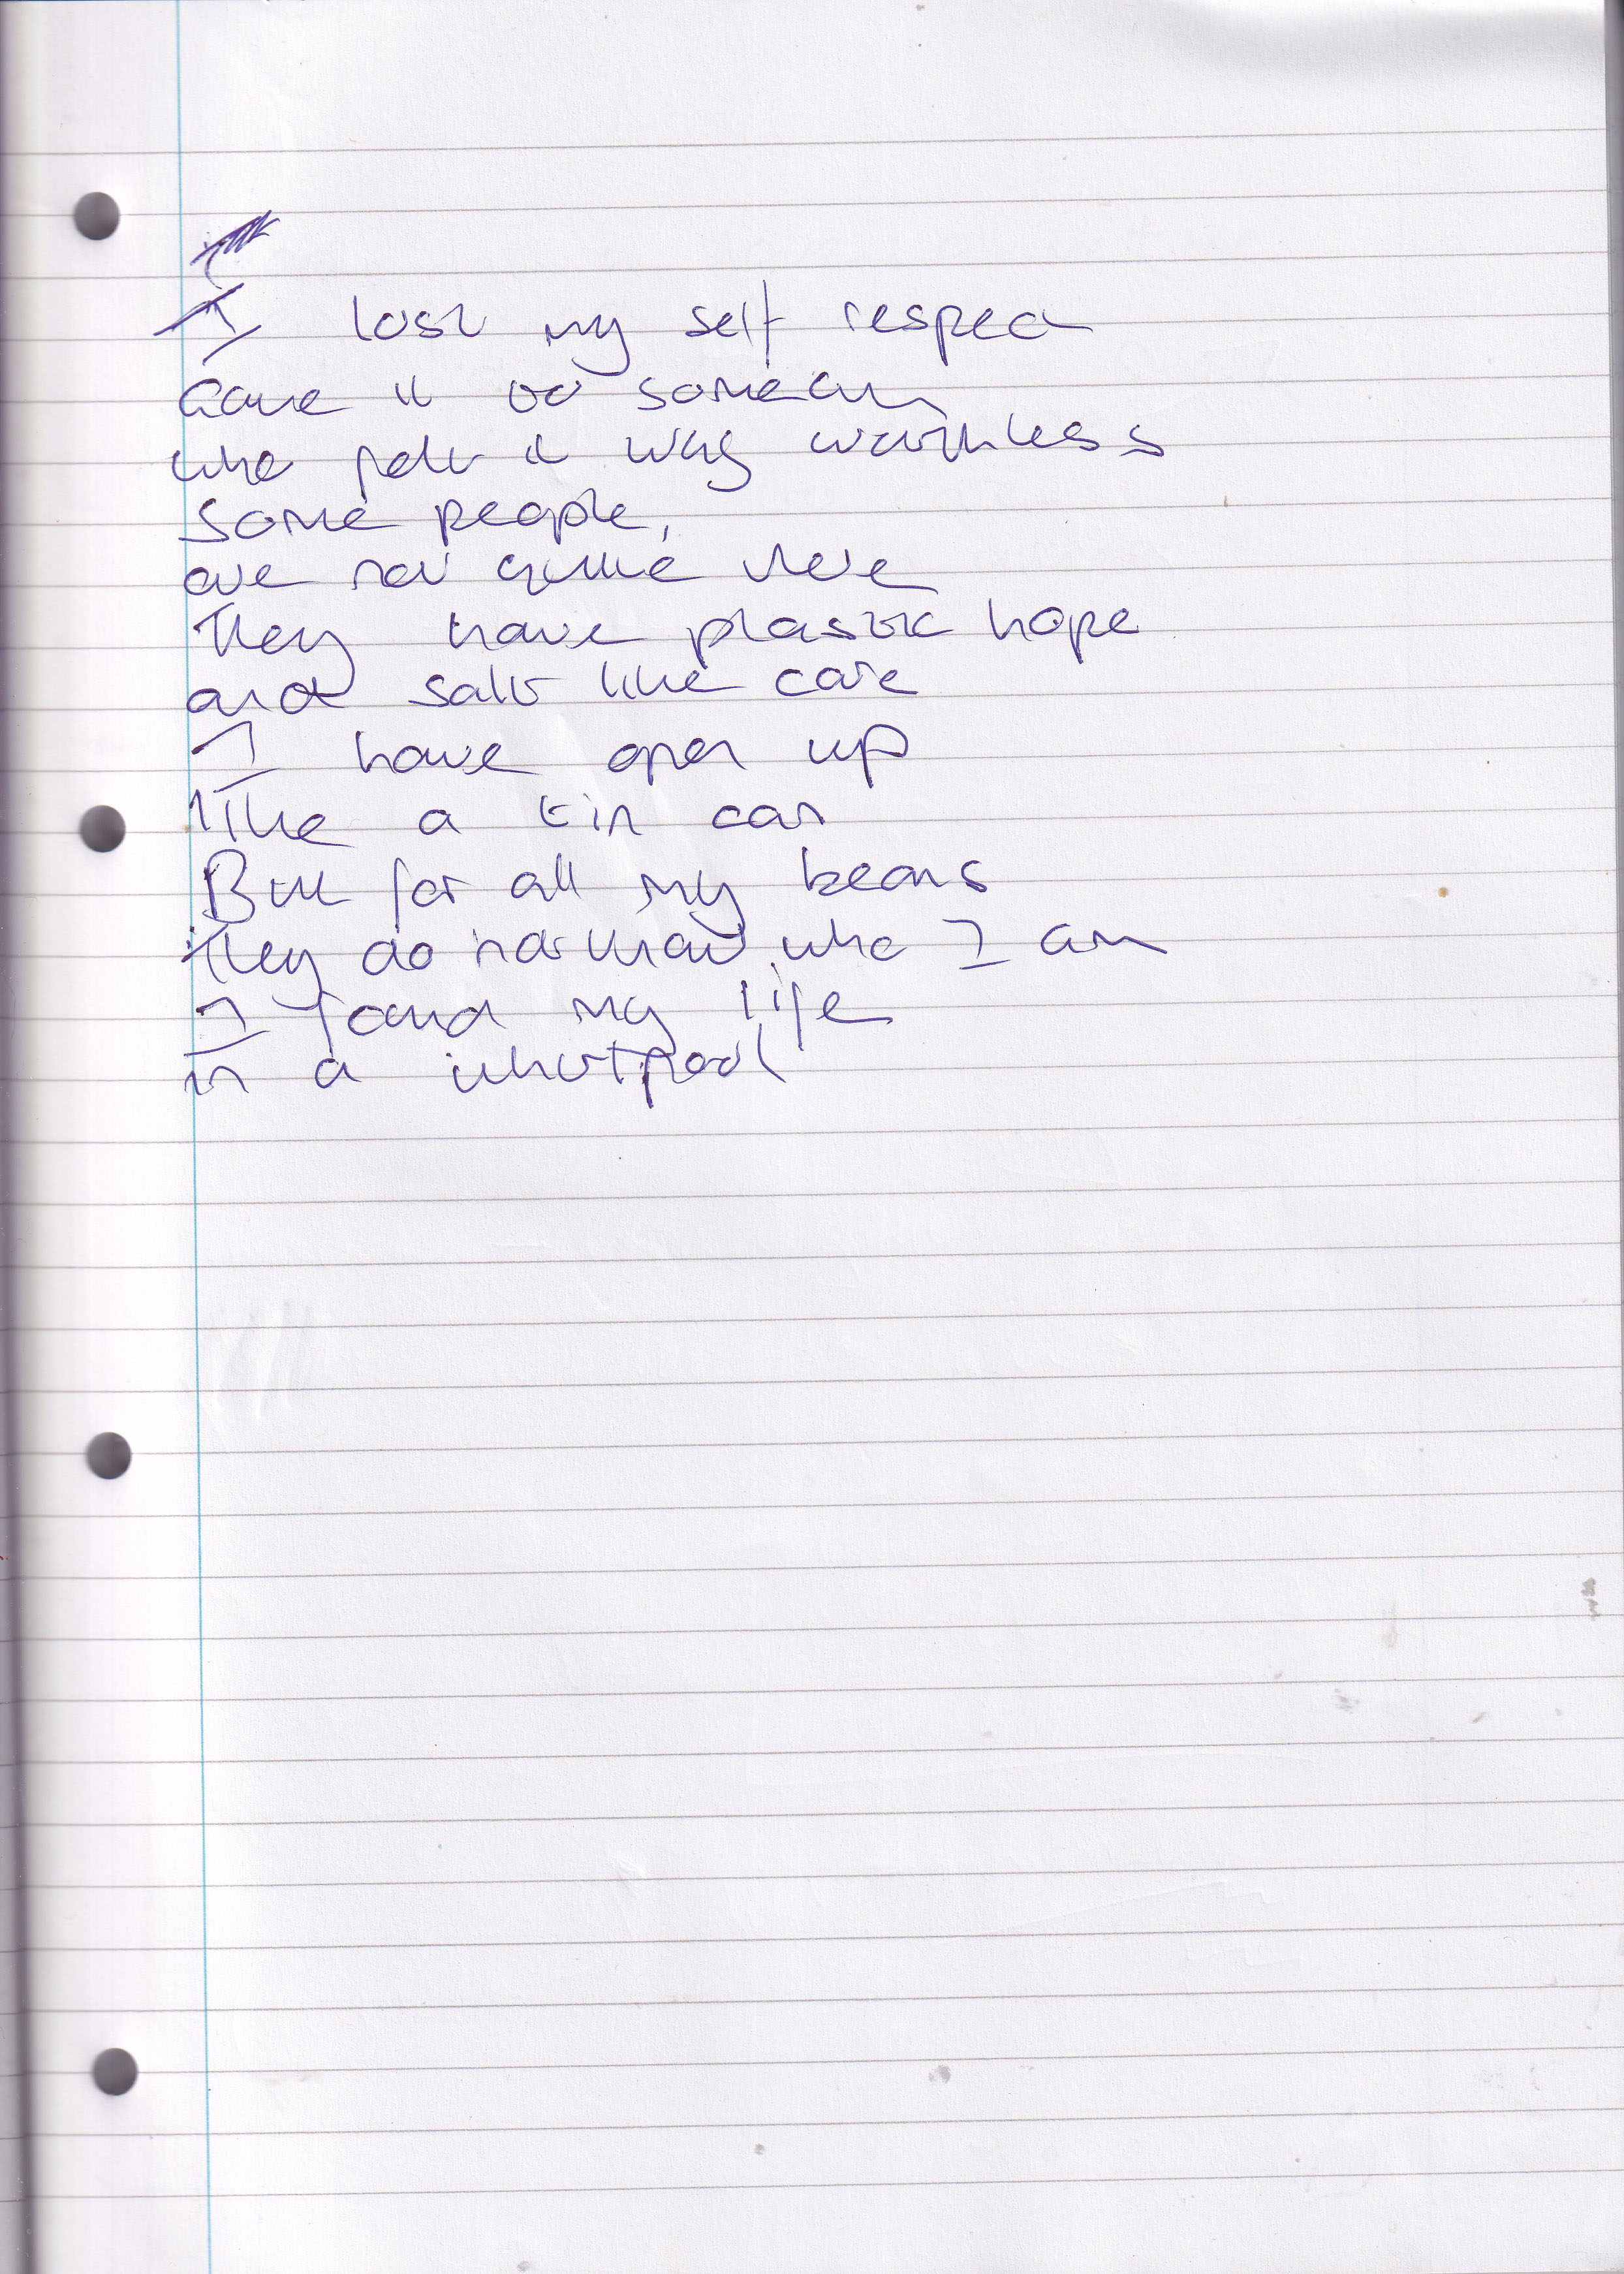 I lost my self respect
Gave it to someone
who felt it was worthless
Some people,
are not quite there
They have plastic hope
and salt like care
I have open up
like a tin can
But for all my beans
They do not know who I am
I found my life
in a whirlpool